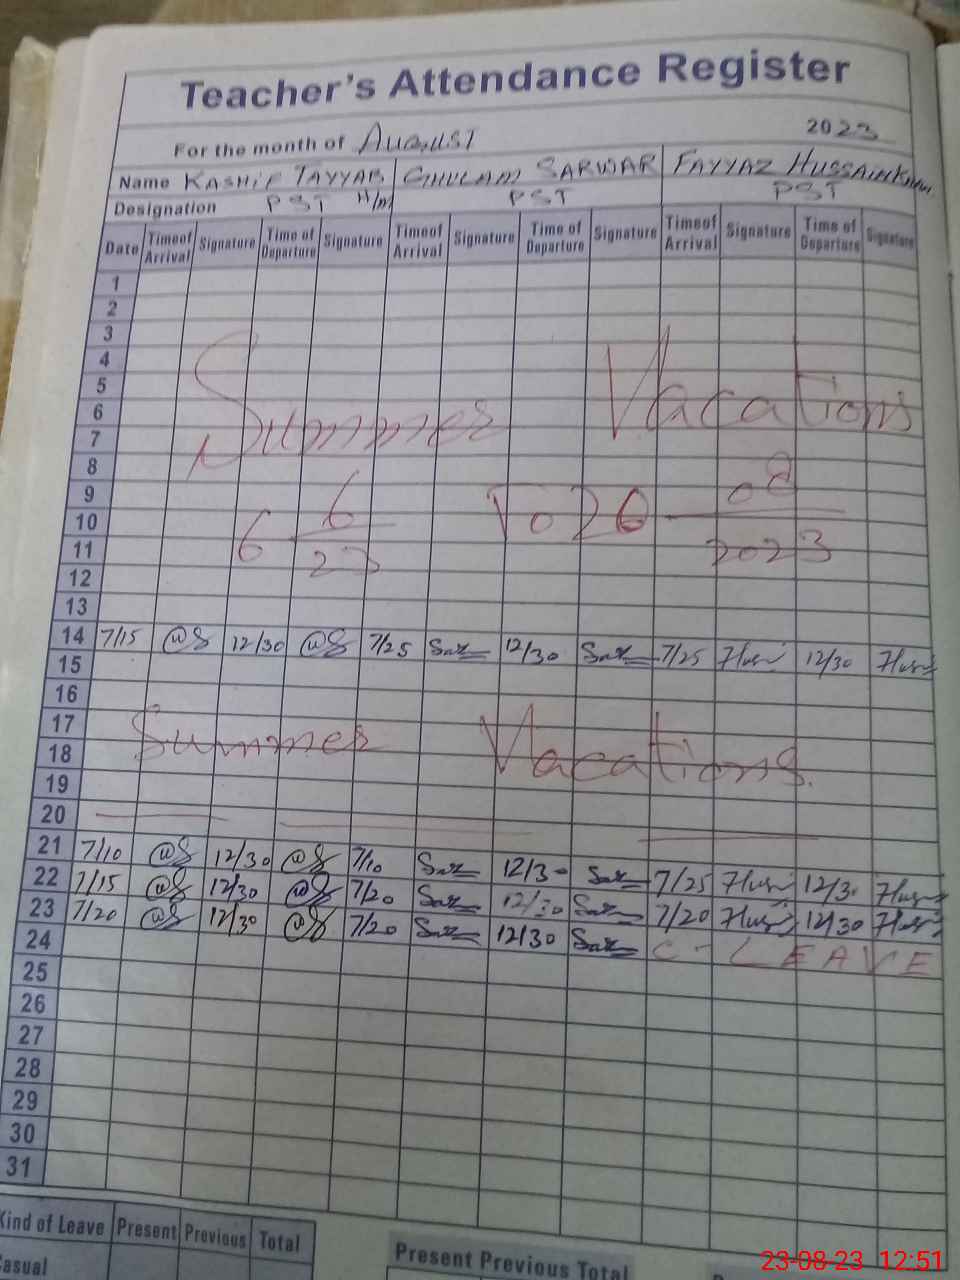 Teacher's Attendance Register
For the month of August 2023
Name KASHIF TAYYAB GHULAM SARWAR FAYYAZ HUSSAIN Khan
Designation PST H/M PST PST
Date Time of Arrival Signature Time of Departure Signature Time of Arrival Signature Time of Departure Signature Time of Arrival Signature Time of Departure Signature
1
2
3
4
5
6
7
Summer Vacations
8
9
10
11
6 6/23 To 20 08/2023
12
13
14 7/15 12/30 7/25 12/30 7/25 12/30
15
16
17
18
Summer Vacations.
19
20
21 7/10 12/30 7/10 12/30 7/25 12/30
22 7/15 12/30 7/20 12/30 7/20 12/30
23 7/20 12/30 7/20 12/30 C-LEAVE
24
25
26
27
28
29
30
31
Kind of Leave Present Previous Total
Casual
Present Previous Total
23-08-23 12:51